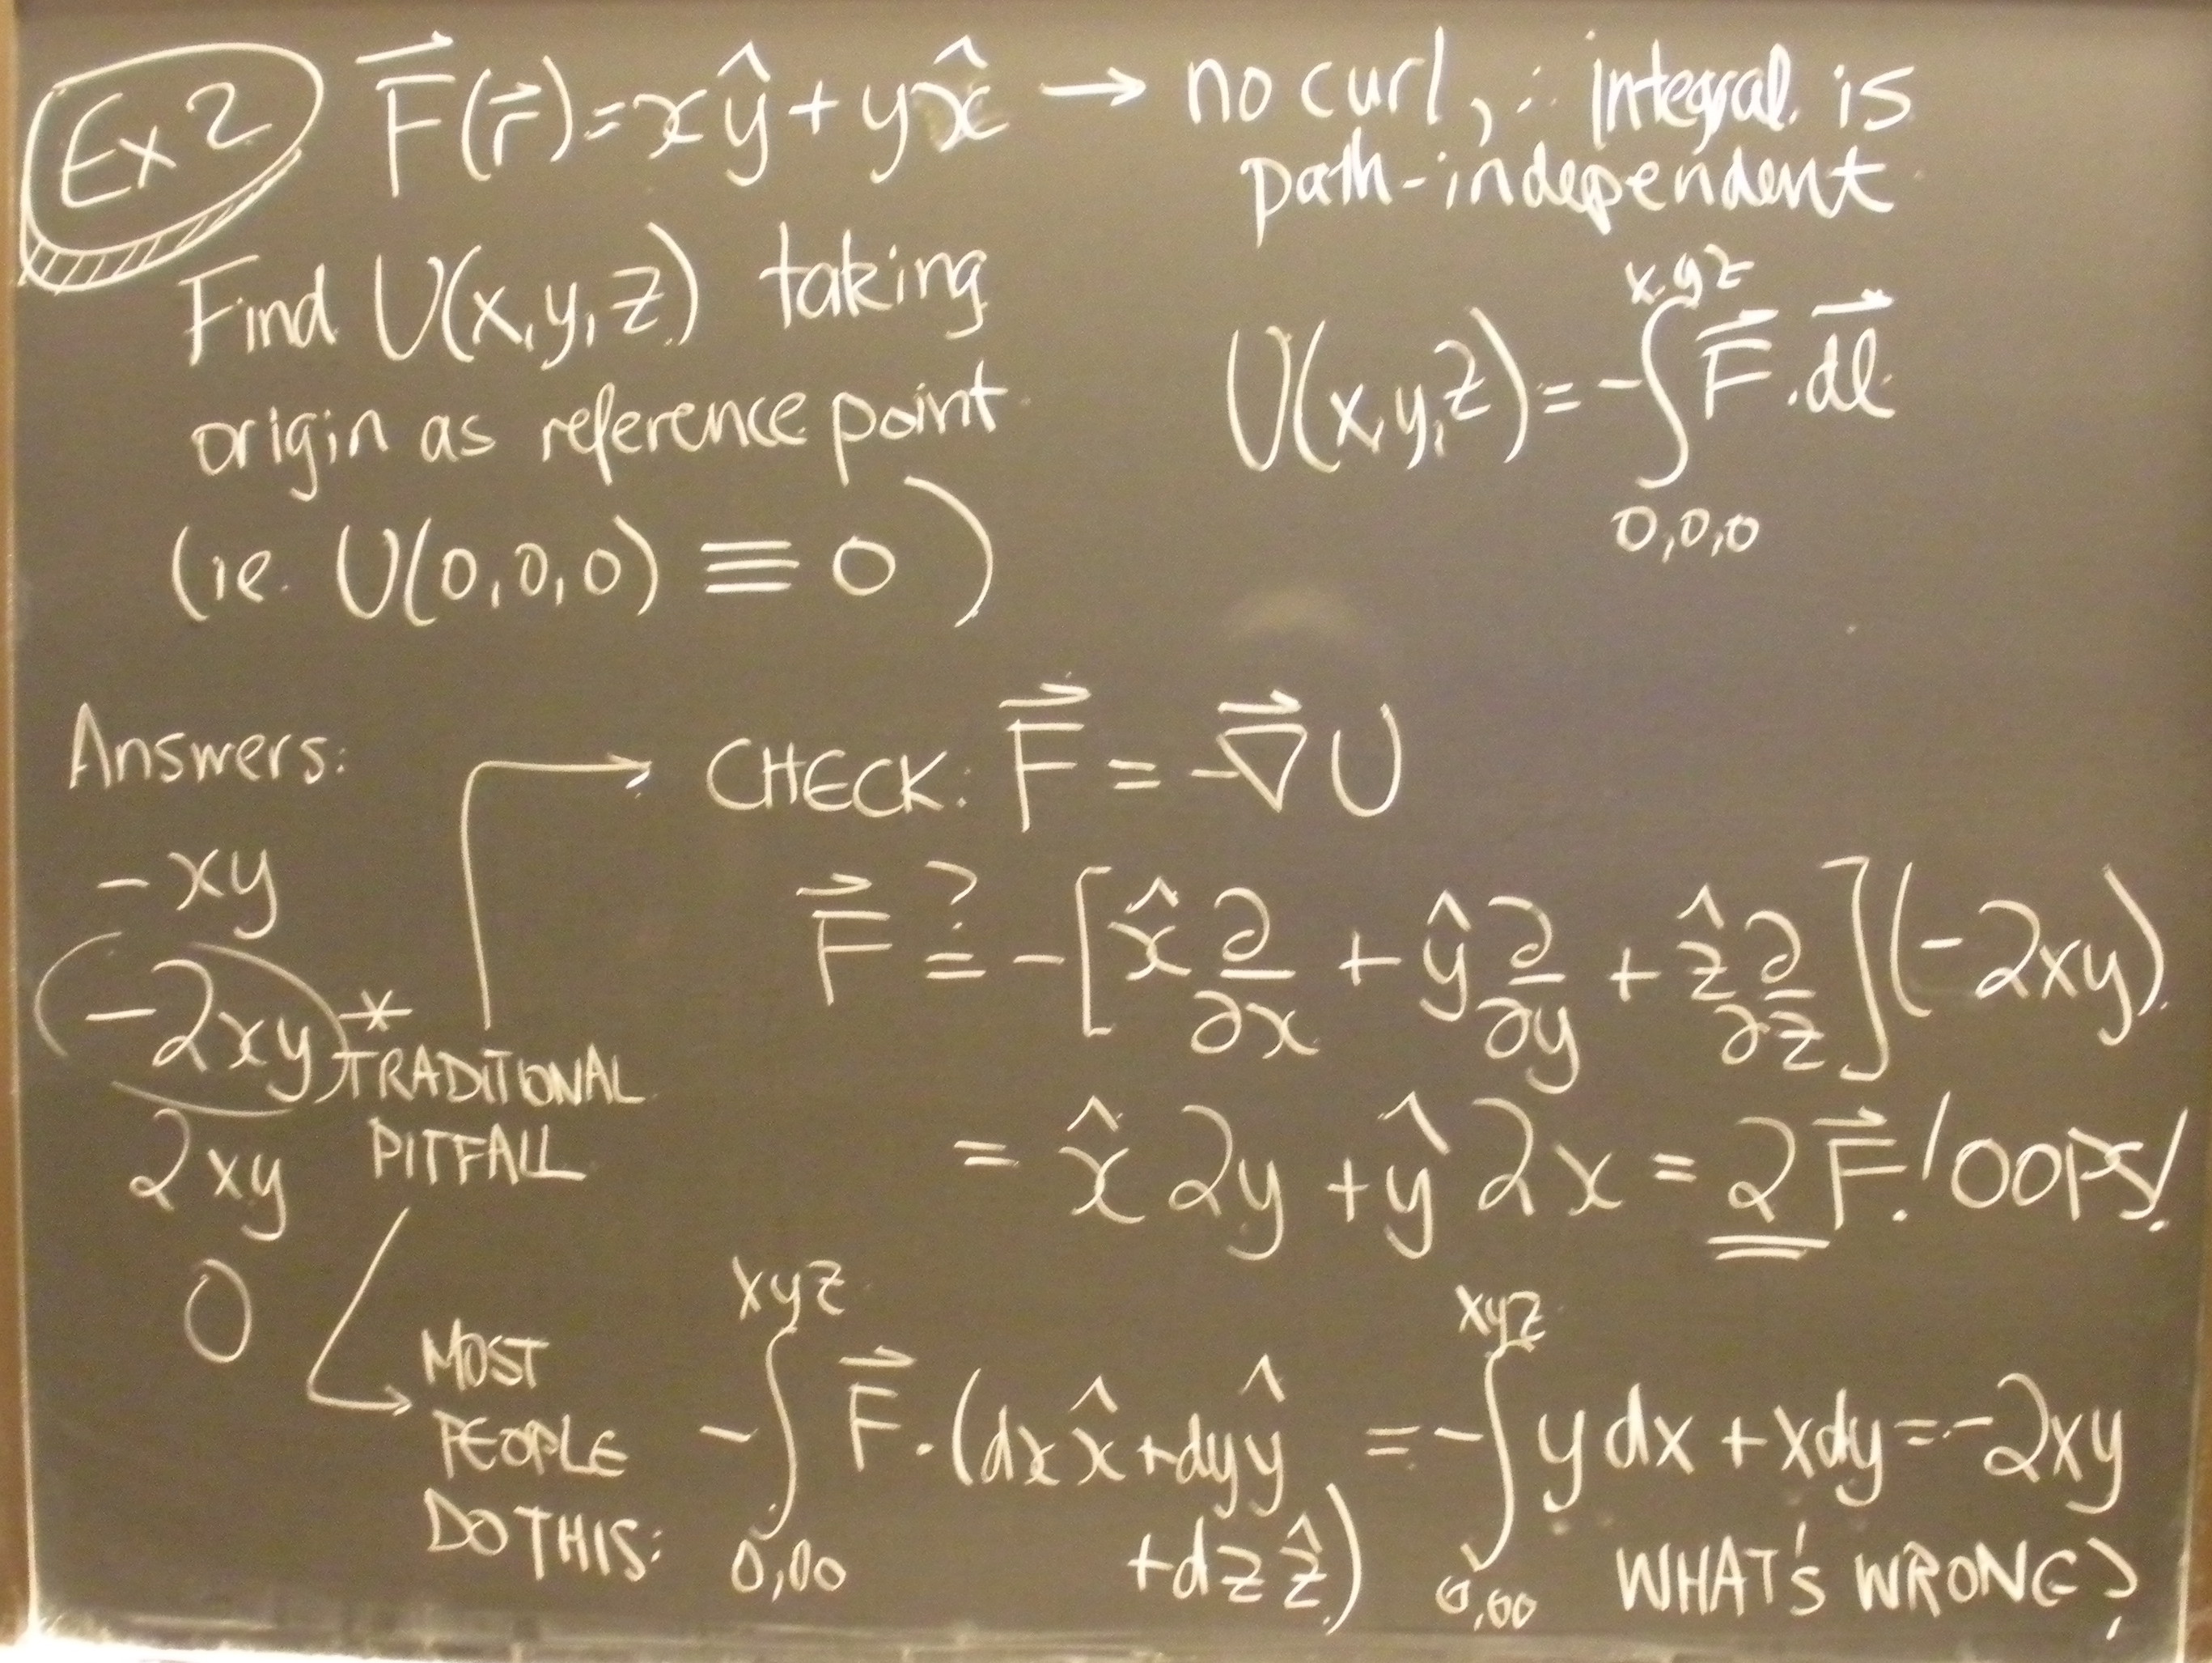 Ex 2
F⃗(r⃗)=xŷ+yx̂ → no curl, ∴ integral is
path-independent
Find U(x,y,z) taking
origin as reference point
(ie. U(0,0,0) ≡ 0)
x,y,z
U(x,y,z)=-∫F⃗.dl⃗
0,0,0
Answers:
-xy
-2xy *
TRADITIONAL
PITFALL
2xy
0
CHECK: F⃗ = -∇⃗U
F⃗ ≟ -[x̂ ∂/∂x + ŷ ∂/∂y + ẑ ∂/∂z](-2xy)
= x̂ 2y + ŷ 2x = 2F⃗.! OOPS!
MOST
PEOPLE
DO THIS:
xyz
-∫F⃗.(dx x̂+dy ŷ
+dz ẑ)
0,00
xyz
=-∫y dx + xdy=-2xy
0,00
WHAT'S WRONG?